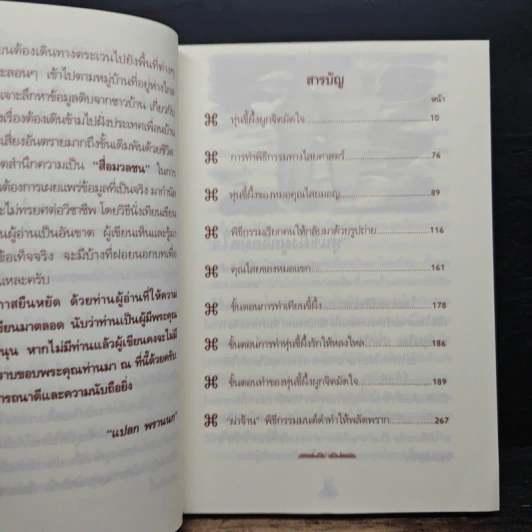 ยนต้องเดินทางตระเวนไปยังพื้นที่ต่างๆ
ะลอนๆ เข้าไปตามหมู่บ้านที่อยู่ห่างไกล
เจาะลึกหาข้อมูลดิบจากชาวบ้าน เกี่ยวกับ
งเรื่องต้องเดินข้ามไปฝั่งประเทศเพื่อนบ้าน
เสี่ยงอันตรายมากถึงขั้นเดิมพันด้วยชีวิต
ตสำนึกความเป็น "สื่อมวลชน" ในการ
ต้องการเผยแพร่ข้อมูลที่เป็นจริง มากำนัล
ะไม่ทรยศต่อวิชาชีพ โดยวิธีนั่งเทียนเขียน
นผู้อ่านเป็นอันขาด ผู้เขียนเห็นและรู้มา
ข้อเท็จจริง จะมีบ้างที่ฝอยนอกบทเพื่อ
แหละครับ
กาสยืนหยัด ด้วยท่านผู้อ่านที่ให้ความ
ขียนมาตลอด นับว่าท่านเป็นผู้มีพระคุณ
นุน หากไม่มีท่านแล้วผู้เขียนคงจะไม่มี
ราบขอบพระคุณท่านมา ณ ที่นี้ด้วยครับ
ารถนาดีและความนับถือยิ่ง
"แปลก พรานนก"
สารบัญ
หน้า
หุ่นขี้ผึ้งผูกจิตมัดใจ 10
การทำพิธีกรรมทางไสยศาสตร์ 76
หุ่นขี้ผึ้งของหมอคุณไสยมอญ 89
พิธีกรรมเรียกคนให้กลับมาด้วยรูปถ่าย 116
คุณไสยของหมอแขก 161
ขั้นตอนการทำเทียนขี้ผึ้ง 178
ขั้นตอนการทำหุ่นขี้ผึ้งรักให้หลงใหล 186
ขั้นตอนทำของหุ่นขี้ผึ้งผูกจิตมัดใจ 189
"ผ่าจ้าน" พิธีกรรมมนต์ดำทำให้พลัดพราก 267